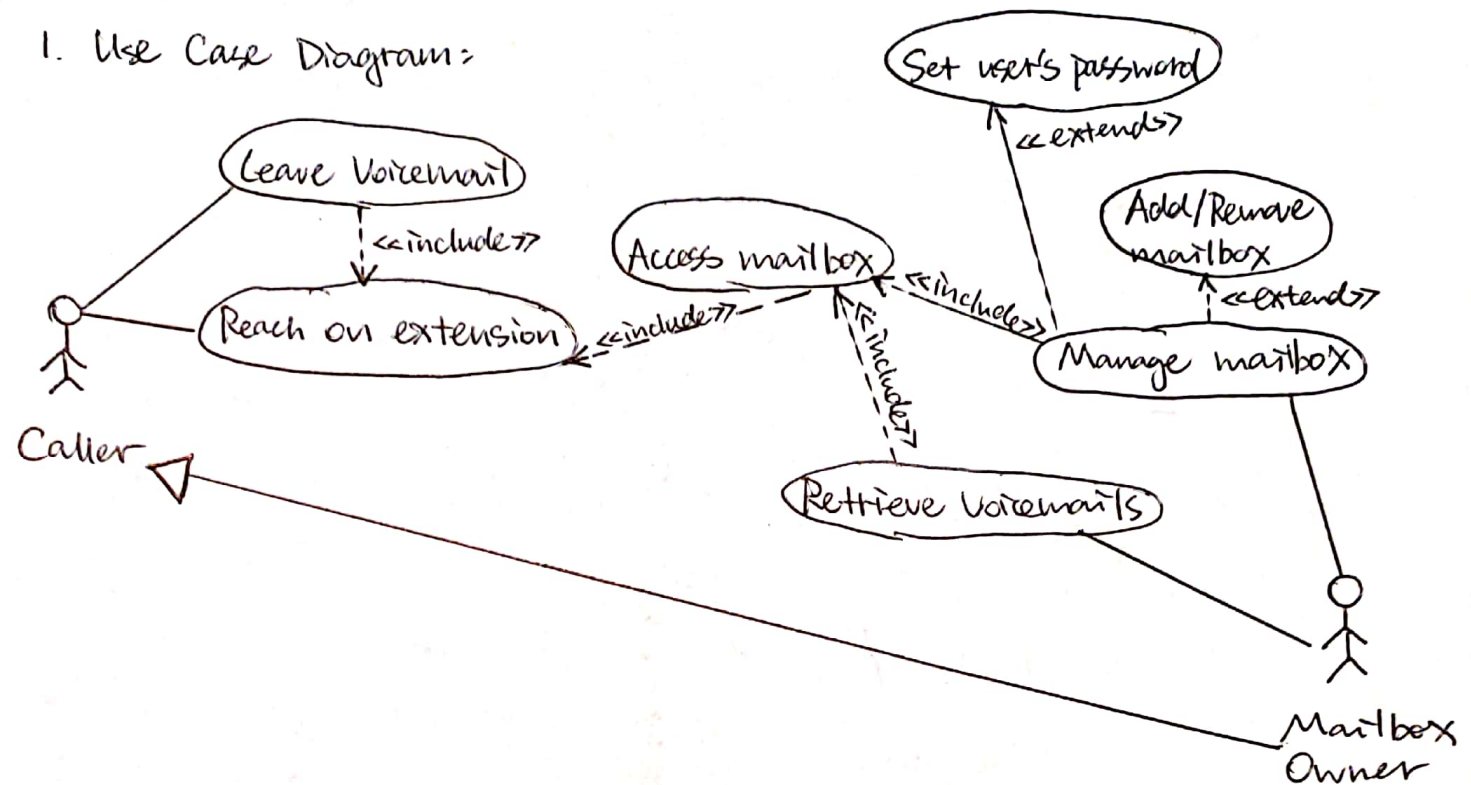 1. Use Case Diagram:
Set user's password
<<extend>>
Leave Voicemail
<<include>>
Add/Remove
mailbox
<<extend>>
Access mailbox
<<include>>
Reach on extension
<<include>>
<<include>>
Manage mailbox
Caller
Retrieve Voicemails
Mailbox
Owner